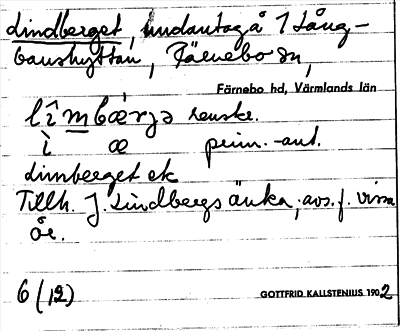 Lindberget, undantag å 1 Lång-
banshyttan, Färnebo sn,
Färnebo hd, Värmlands län
lîmbæ̀rjə
ì æ prim.-ant.
Limberget ek
Tillh. J. Lindbergs änka, avs. f. vissa
år.
6 (12)
GOTTFRID KALLSTENIUS 1902